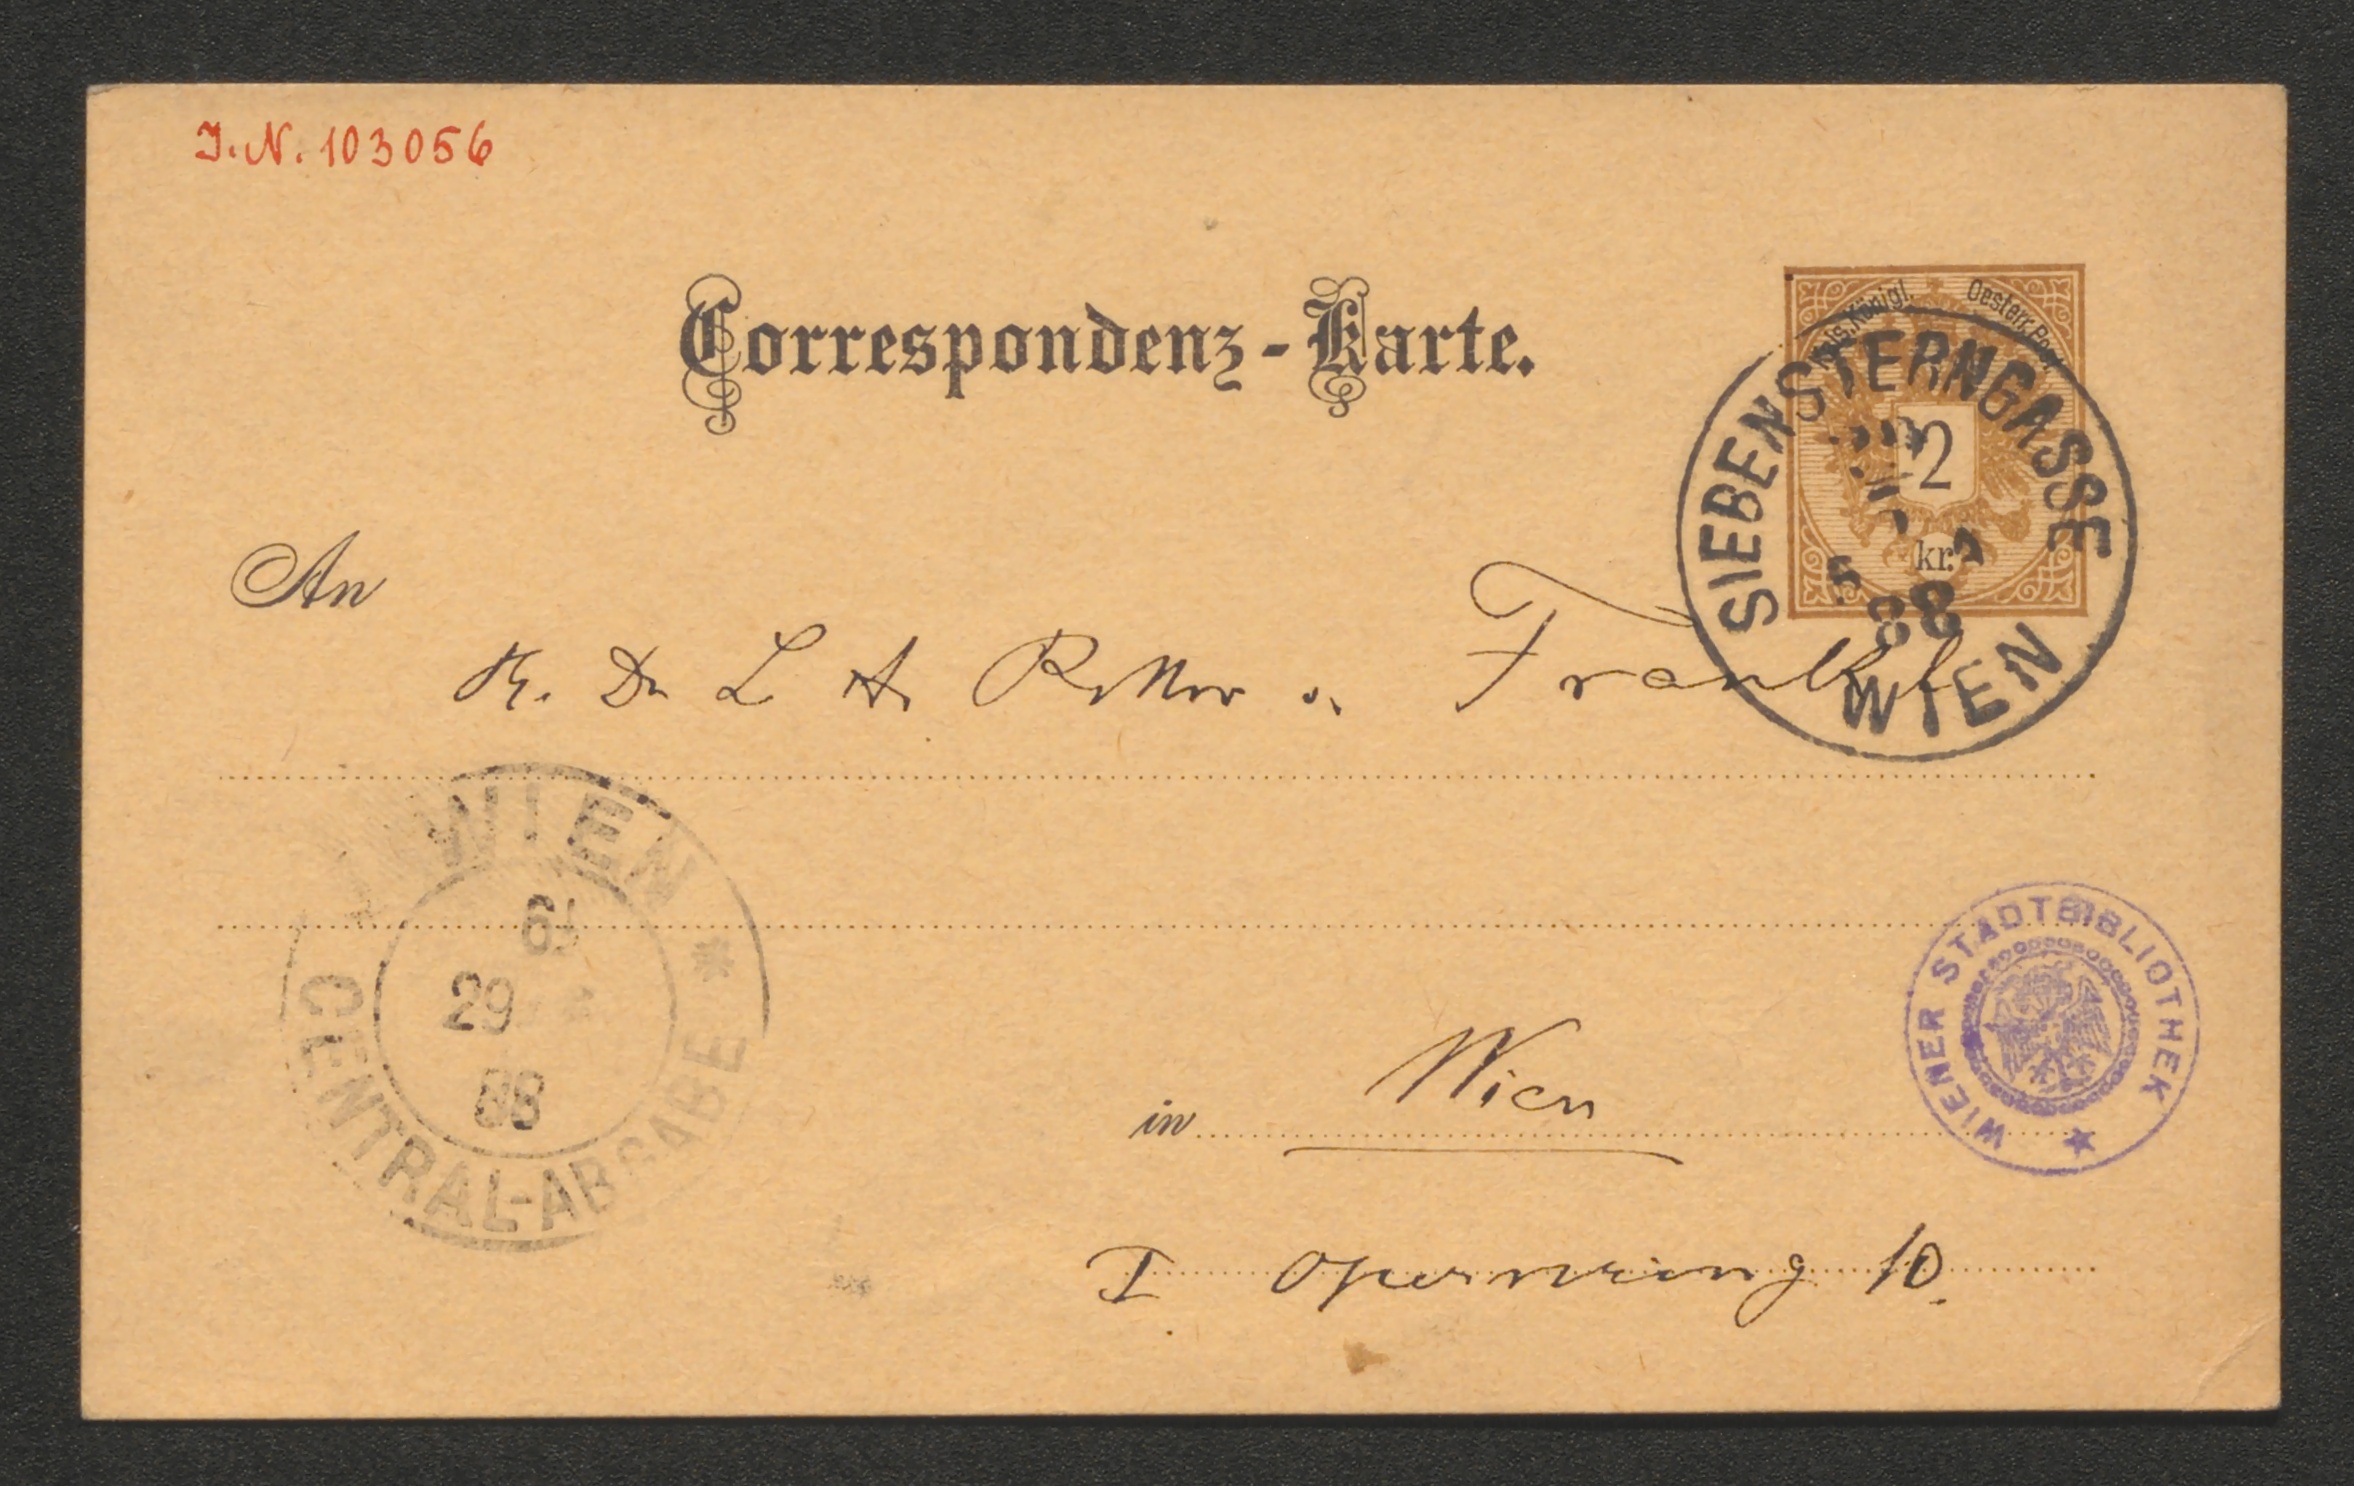 I.N. 103056
Correspondenz-Karte.
Kais. Königl. Oesterr. Post.
2
kr.
SIEBENSTERNGASSE
5
88
WIEN
An
H. Dr L A. Ritter v. Frankl
WIEN
29
88
CENTRAL-ABGABE
WIENER STADTBIBLIOTHEK
in Wien
I Opernring 10.